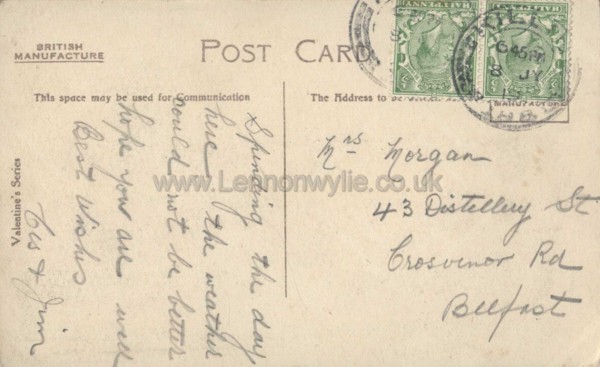 BRITISH
MANUFACTURE
POST CARD
This space may be used for Communication
The Address to be
HALFPENNY
HALFPENNY
6 45 PM
8 JY
MANUFACTURE
Valentine's Series
Spending the day
here, the weather
could not be better
hope you are well
Best Wishes
& Jim
Mrs Morgan
43 Distillery St
Grosvenor Rd
Belfast
www.Lennonwylie.co.uk